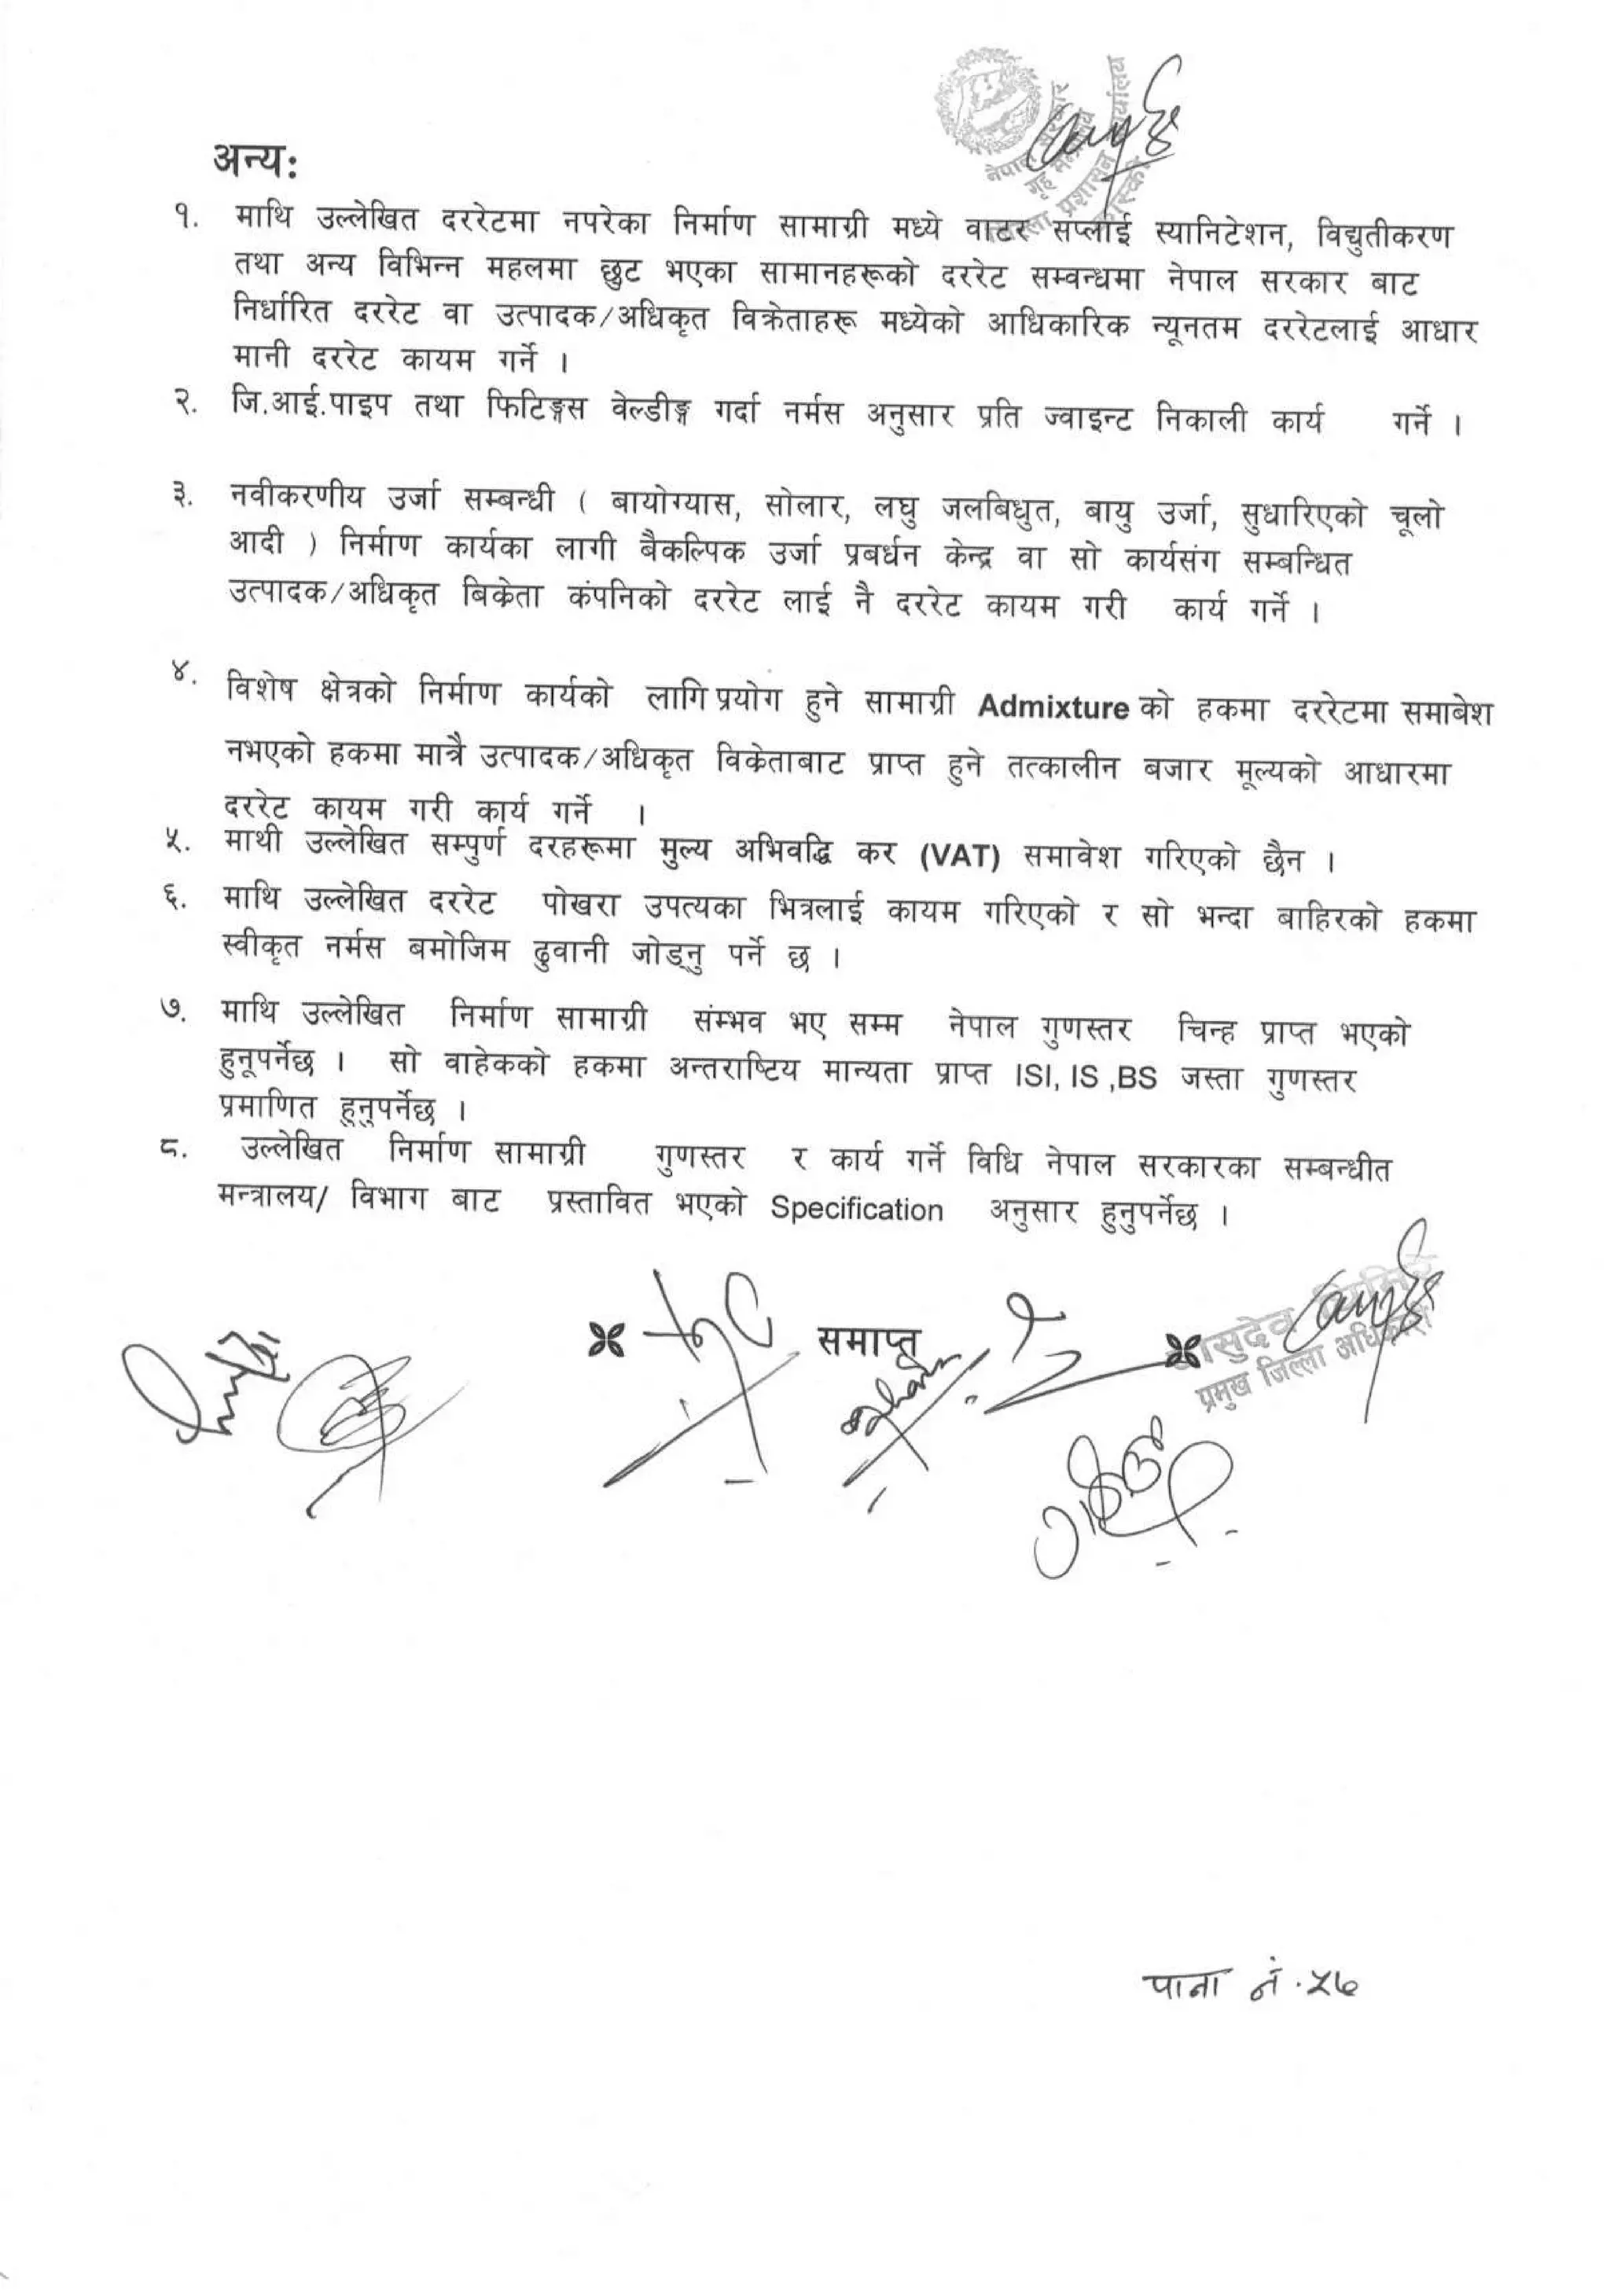 नेपाल सरकार
गृह मन्त्रालय
जिल्ला प्रशासन कार्यालय
अन्यः
१. माथि उल्लेखित दररेटमा नपरेका निर्माण सामाग्री मध्ये वाटर सप्लाई स्यानिटेशन, विद्युतीकरण
तथा अन्य विभिन्न महलमा छुट भएका सामानहरूको दररेट सम्वन्धमा नेपाल सरकार बाट
निर्धारित दररेट वा उत्पादक/अधिकृत विक्रेताहरू मध्येको आधिकारिक न्यूनतम दररेटलाई आधार
मानी दररेट कायम गर्ने ।
२. जि.आई.पाइप तथा फिटिङ्गस वेल्डीङ्ग गर्दा नर्मस अनुसार प्रति ज्वाइन्ट निकाली कार्य गर्ने ।
३. नवीकरणीय उर्जा सम्बन्धी ( बायोग्यास, सोलार, लघु जलबिधुत, बायु उर्जा, सुधारिएको चूलो
आदी ) निर्माण कार्यका लागी बैकल्पिक उर्जा प्रबर्धन केन्द्र वा सो कार्यसंग सम्बन्धित
उत्पादक/अधिकृत बिक्रेता कंपनिको दररेट लाई नै दररेट कायम गरी कार्य गर्ने ।
४. विशेष क्षेत्रको निर्माण कार्यको लागि प्रयोग हुने सामाग्री Admixture को हकमा दररेटमा समाबेश
नभएको हकमा मात्रै उत्पादक/अधिकृत विक्रेताबाट प्राप्त हुने तत्कालीन बजार मूल्यको आधारमा
दररेट कायम गरी कार्य गर्ने ।
५. माथी उल्लेखित सम्पुर्ण दरहरूमा मुल्य अभिवद्धि कर (VAT) समावेश गरिएको छैन ।
६. माथि उल्लेखित दररेट पोखरा उपत्यका भित्रलाई कायम गरिएको र सो भन्दा बाहिरको हकमा
स्वीकृत नर्मस बमोजिम ढुवानी जोड्नु पर्ने छ ।
७. माथि उल्लेखित निर्माण सामाग्री संम्भव भए सम्म नेपाल गुणस्तर चिन्ह प्राप्त भएको
हुनूपर्नेछ । सो वाहेकको हकमा अन्तराष्टिय मान्यता प्राप्त ISI, IS ,BS जस्ता गुणस्तर
प्रमाणित हुनुपर्नेछ ।
८. उल्लेखित निर्माण सामाग्री गुणस्तर र कार्य गर्ने विधि नेपाल सरकारका सम्बन्धीत
मन्त्रालय/ विभाग बाट प्रस्तावित भएको Specification अनुसार हुनुपर्नेछ ।
समाप्त
प्रमुख जिल्ला अधिकारी
पाना नं. ५७